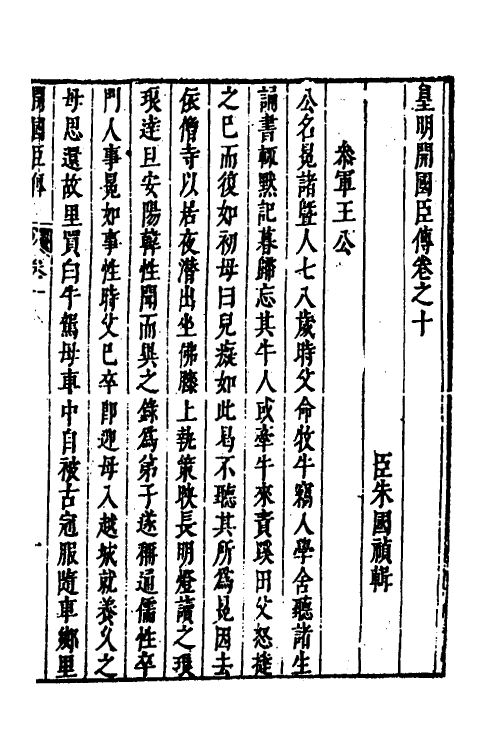 皇明開國臣傳卷之十
臣朱國禎輯
叅軍王公
公名冕諸暨人七八歲時父命牧牛竊入學舍聽諸生
誦書輒默記暮歸忘其牛人或牽牛來責蹊田父怒撻
之已而復如初母曰兒癡如此曷不聽其所爲冕因去
依僧寺以居夜潛出坐佛膝上執策映長明燈讀之琅
琅達旦安陽韓性聞而異之錄爲弟子遂稱通儒性卒
門人事冕如事性時父已卒即迎母入越城就養久之
母思還故里買白牛駕母車中自被古冠服隨車鄉里
開國臣傳